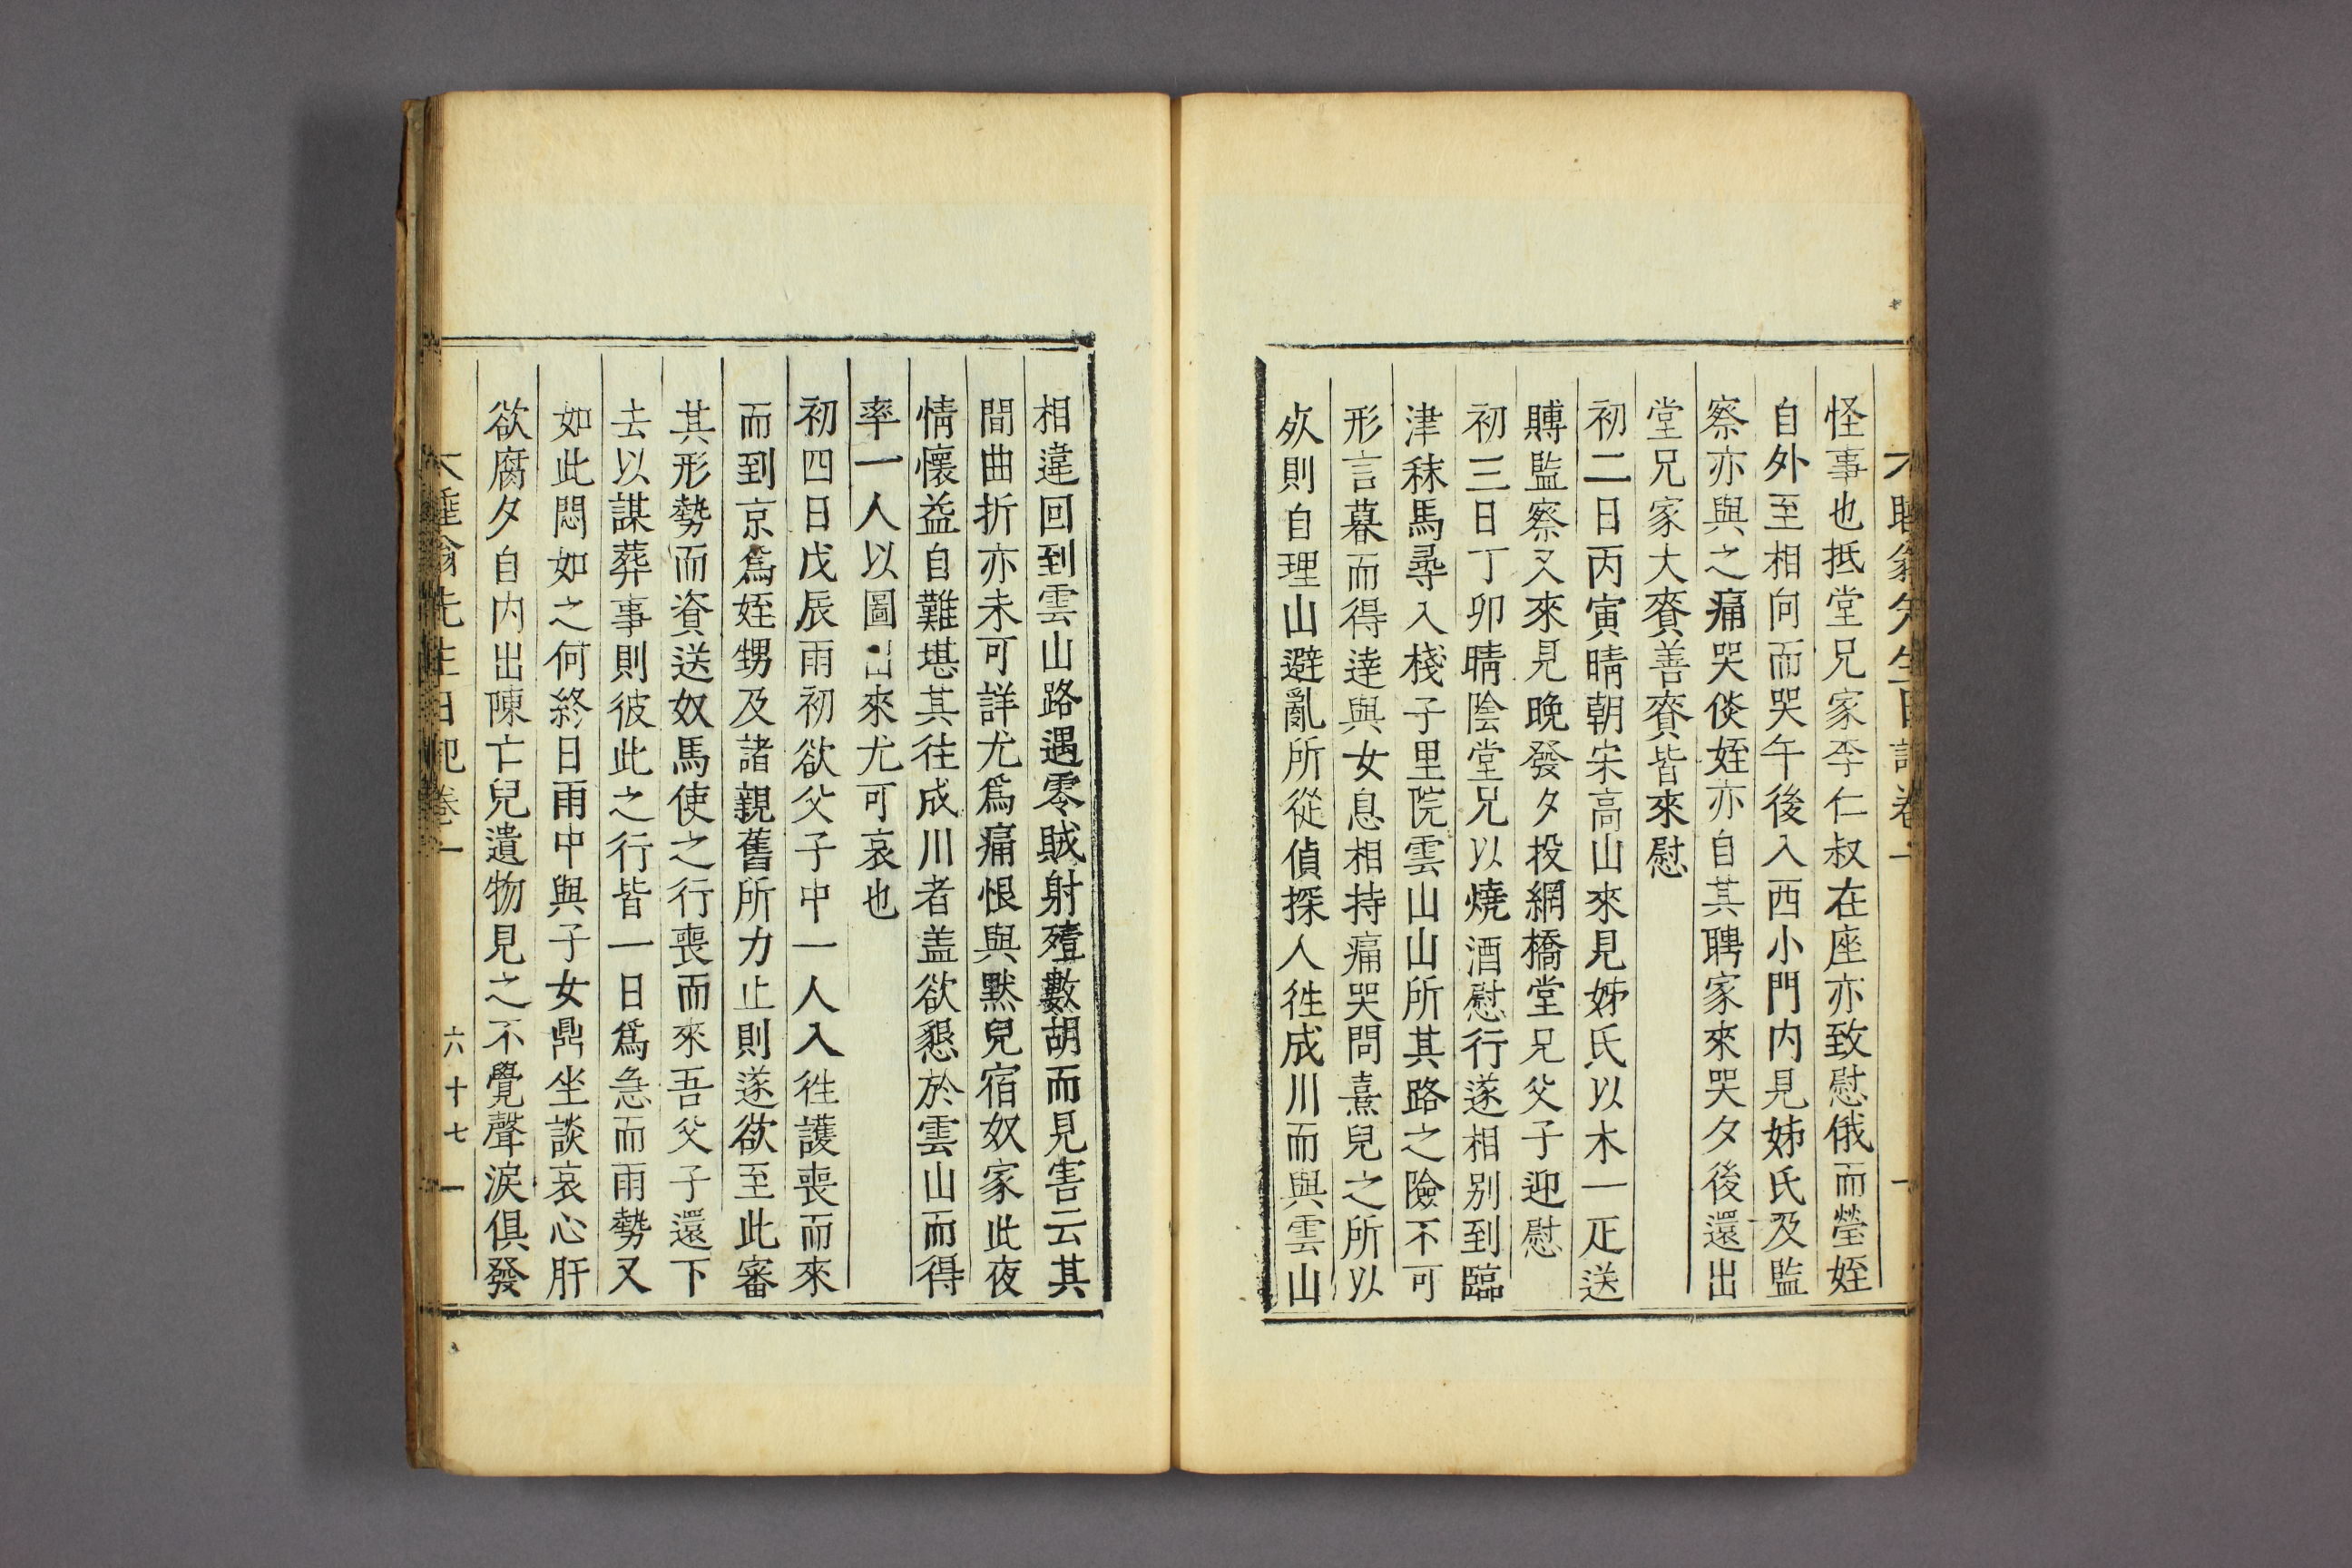 怪事也抵堂兄家李仁叔在座亦致慰俄而瑩姪
自外至相向而哭午後入西小門內見姊氏及監
察亦與之痛哭倓姪亦自其聘家來哭夕後還出
堂兄家大賚善賚皆來慰
初二日丙寅晴朝宋高山來見姊氏以木一疋送
賻監察又來見晚發夕投網橋堂兄父子迎慰
初三日丁卯晴陰堂兄以燒酒慰行遂相別到臨
津秣馬尋入棧子里院雲山山所其路之險不可
形言暮而得達與女息相持痛哭問熹兒之所以
死則自理山避亂所從偵探人徃成川而與雲山
相違回到雲山路遇零賊射殪數胡而見害云其
間曲折亦未可詳尤爲痛恨與默兒宿奴家此夜
情懷益自難堪其往成川者盖欲懇於雲山而得
率一人以圖出來尤可哀也
初四日戊辰雨初欲父子中一人入徃護喪而來
而到京爲姪甥及諸親舊所力止則遂欲至此審
其形勢而資送奴馬使之行喪而來吾父子還下
去以謀葬事則彼此之行皆一日爲急而雨勢又
如此悶如之何終日雨中與子女鼎坐談哀心肝
欲腐夕自內出陳亡兒遺物見之不覺聲淚俱發
先生日記卷一
六十七